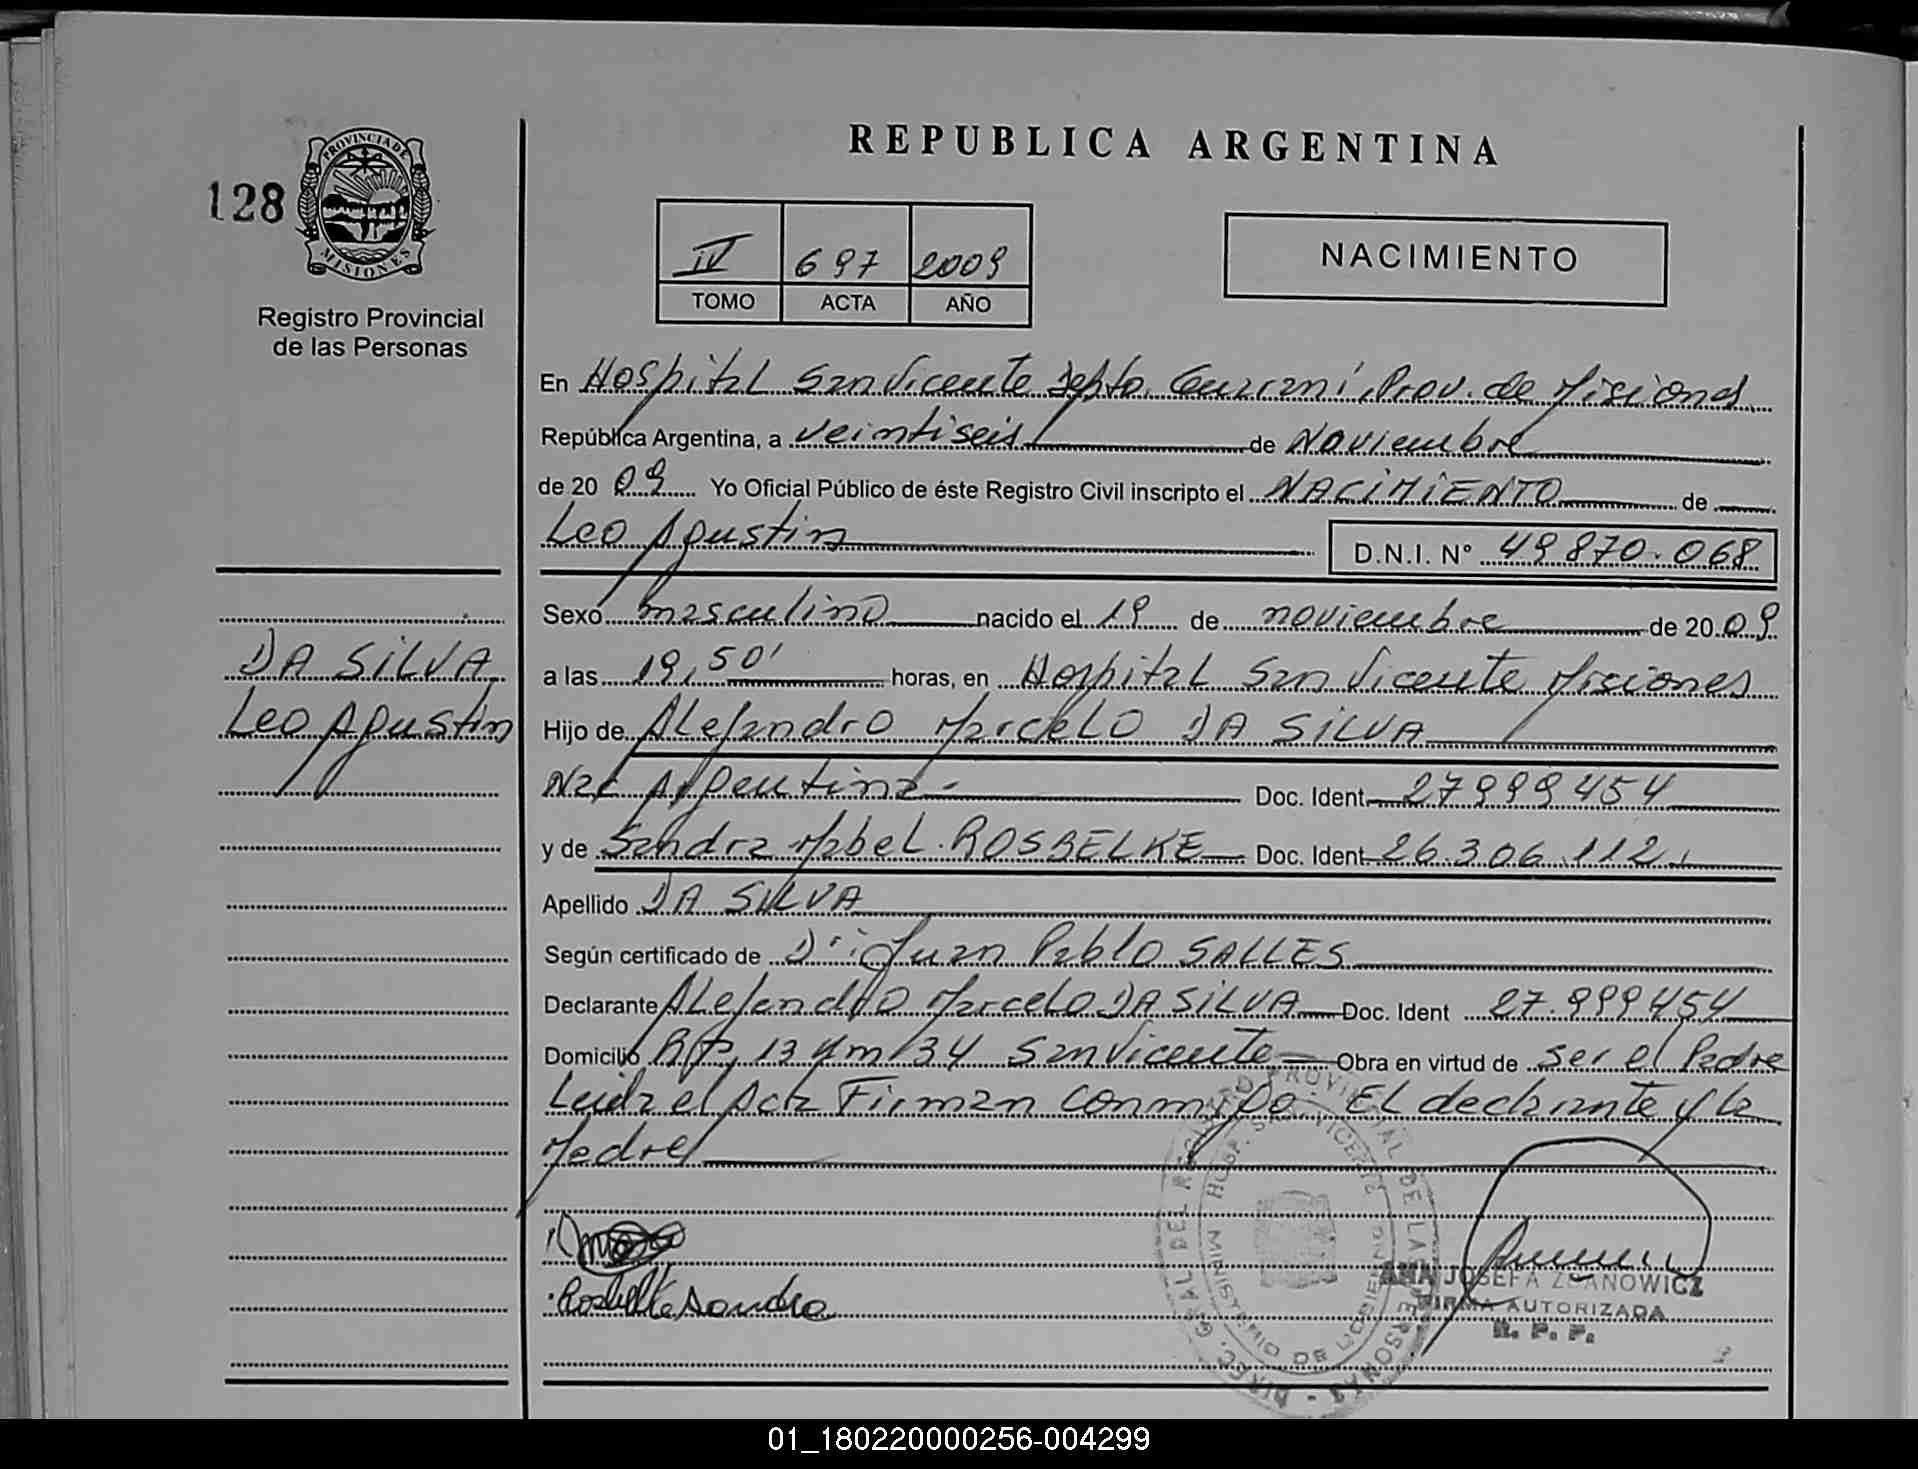 REPUBLICA ARGENTINA
128
PROVINCIA DE
MISIONES
Registro Provincial
de las Personas
IV 697 2009
TOMO ACTA AÑO
NACIMIENTO
En Hospital San Vicente Depto. Guaraní, Prov. de Misiones
República Argentina, a veintiseis de Noviembre
de 20 09 Yo Oficial Público de éste Registro Civil inscripto el NACIMIENTO de
Leo Agustin
D.N.I. N° 49.870.068
Sexo masculino nacido el 19 de noviembre de 20 09
a las 19,50' horas, en Hospital San Vicente Misiones
Hijo de Alejandro Marcelo DA SILVA
Nac Argentina- Doc. Ident. 27999454
y de Sandra Mabel ROSBELKE Doc. Ident. 26.306.112
Apellido DA SILVA
Según certificado de Juan Pablo SALLES
Declarante Alejandro Marcelo DA SILVA Doc. Ident 27.999454
Domicilio 13 Km 34 San Vicente Obra en virtud de ser el Padre
Leida el Acta Firman conmigo El declarante y la
Madre
DA SILVA
Leo Agustin
Sandra
DIREC. GRAL DEL REGISTRO PROVINCIAL DE LAS PERSONAS
HOSP. SAN VICENTE
MINISTERIO DE GOBIERNO
ANA JOSEFA ZDANOWICZ
FIRMA AUTORIZADA
R. P. P.
01_180220000256-004299